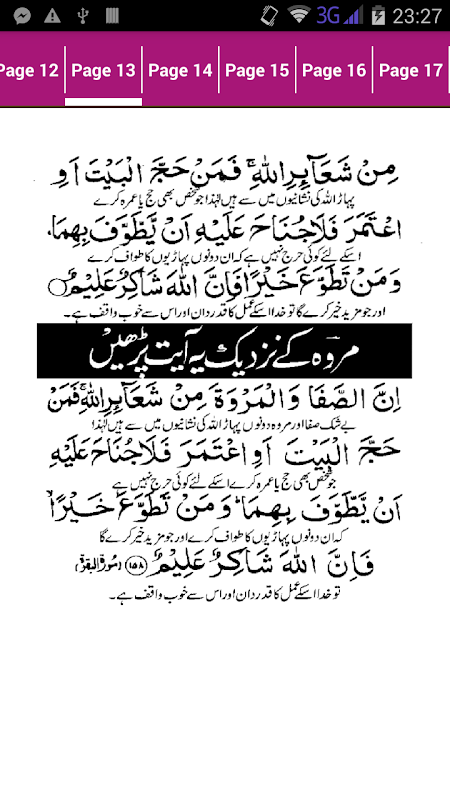 3G 23:27
Page 12 Page 13 Page 14 Page 15 Page 16 Page 17
مِنْ شَعَآئِرِ اللّٰهِ ۚ فَمَنْ حَجَّ الْبَيْتَ اَوِ
پہاڑ اللہ کی نشانیوں میں سے ہیں لہٰذا جو شخص بھی حج یا عمرہ کرے
اعْتَمَرَ فَلَا جُنَاحَ عَلَيْهِ اَنْ يَّطَّوَّفَ بِهِمَا ؕ
اسکے لئے کوئی حرج نہیں ہے کہ ان دونوں پہاڑیوں کا طواف کرے
وَمَنْ تَطَوَّعَ خَيْرًا فَاِنَّ اللّٰهَ شَاكِرٌ عَلِيْمٌ
اور جو مزید خیر کرے گا تو خدا اسکے عمل کا قدر دان اور اس سے خوب واقف ہے۔
مروہ کے نزدیک یہ آیت پڑھیں
اِنَّ الصَّفَا وَالْمَرْوَةَ مِنْ شَعَآئِرِ اللّٰهِ ۚ فَمَنْ
بے شک صفا اور مروہ دونوں پہاڑ اللہ کی نشانیوں میں سے ہیں لہٰذا
حَجَّ الْبَيْتَ اَوِ اعْتَمَرَ فَلَا جُنَاحَ عَلَيْهِ
جو شخص بھی حج یا عمرہ کرے اسکے لئے کوئی حرج نہیں ہے
اَنْ يَّطَّوَّفَ بِهِمَا ؕ وَمَنْ تَطَوَّعَ خَيْرًا
کہ ان دونوں پہاڑیوں کا طواف کرے اور جو مزید خیر کرے گا
فَاِنَّ اللّٰهَ شَاكِرٌ عَلِيْمٌ ﴿۱۵۸﴾ (سورۃ البقرۃ)
تو خدا اسکے عمل کا قدر دان اور اس سے خوب واقف ہے۔